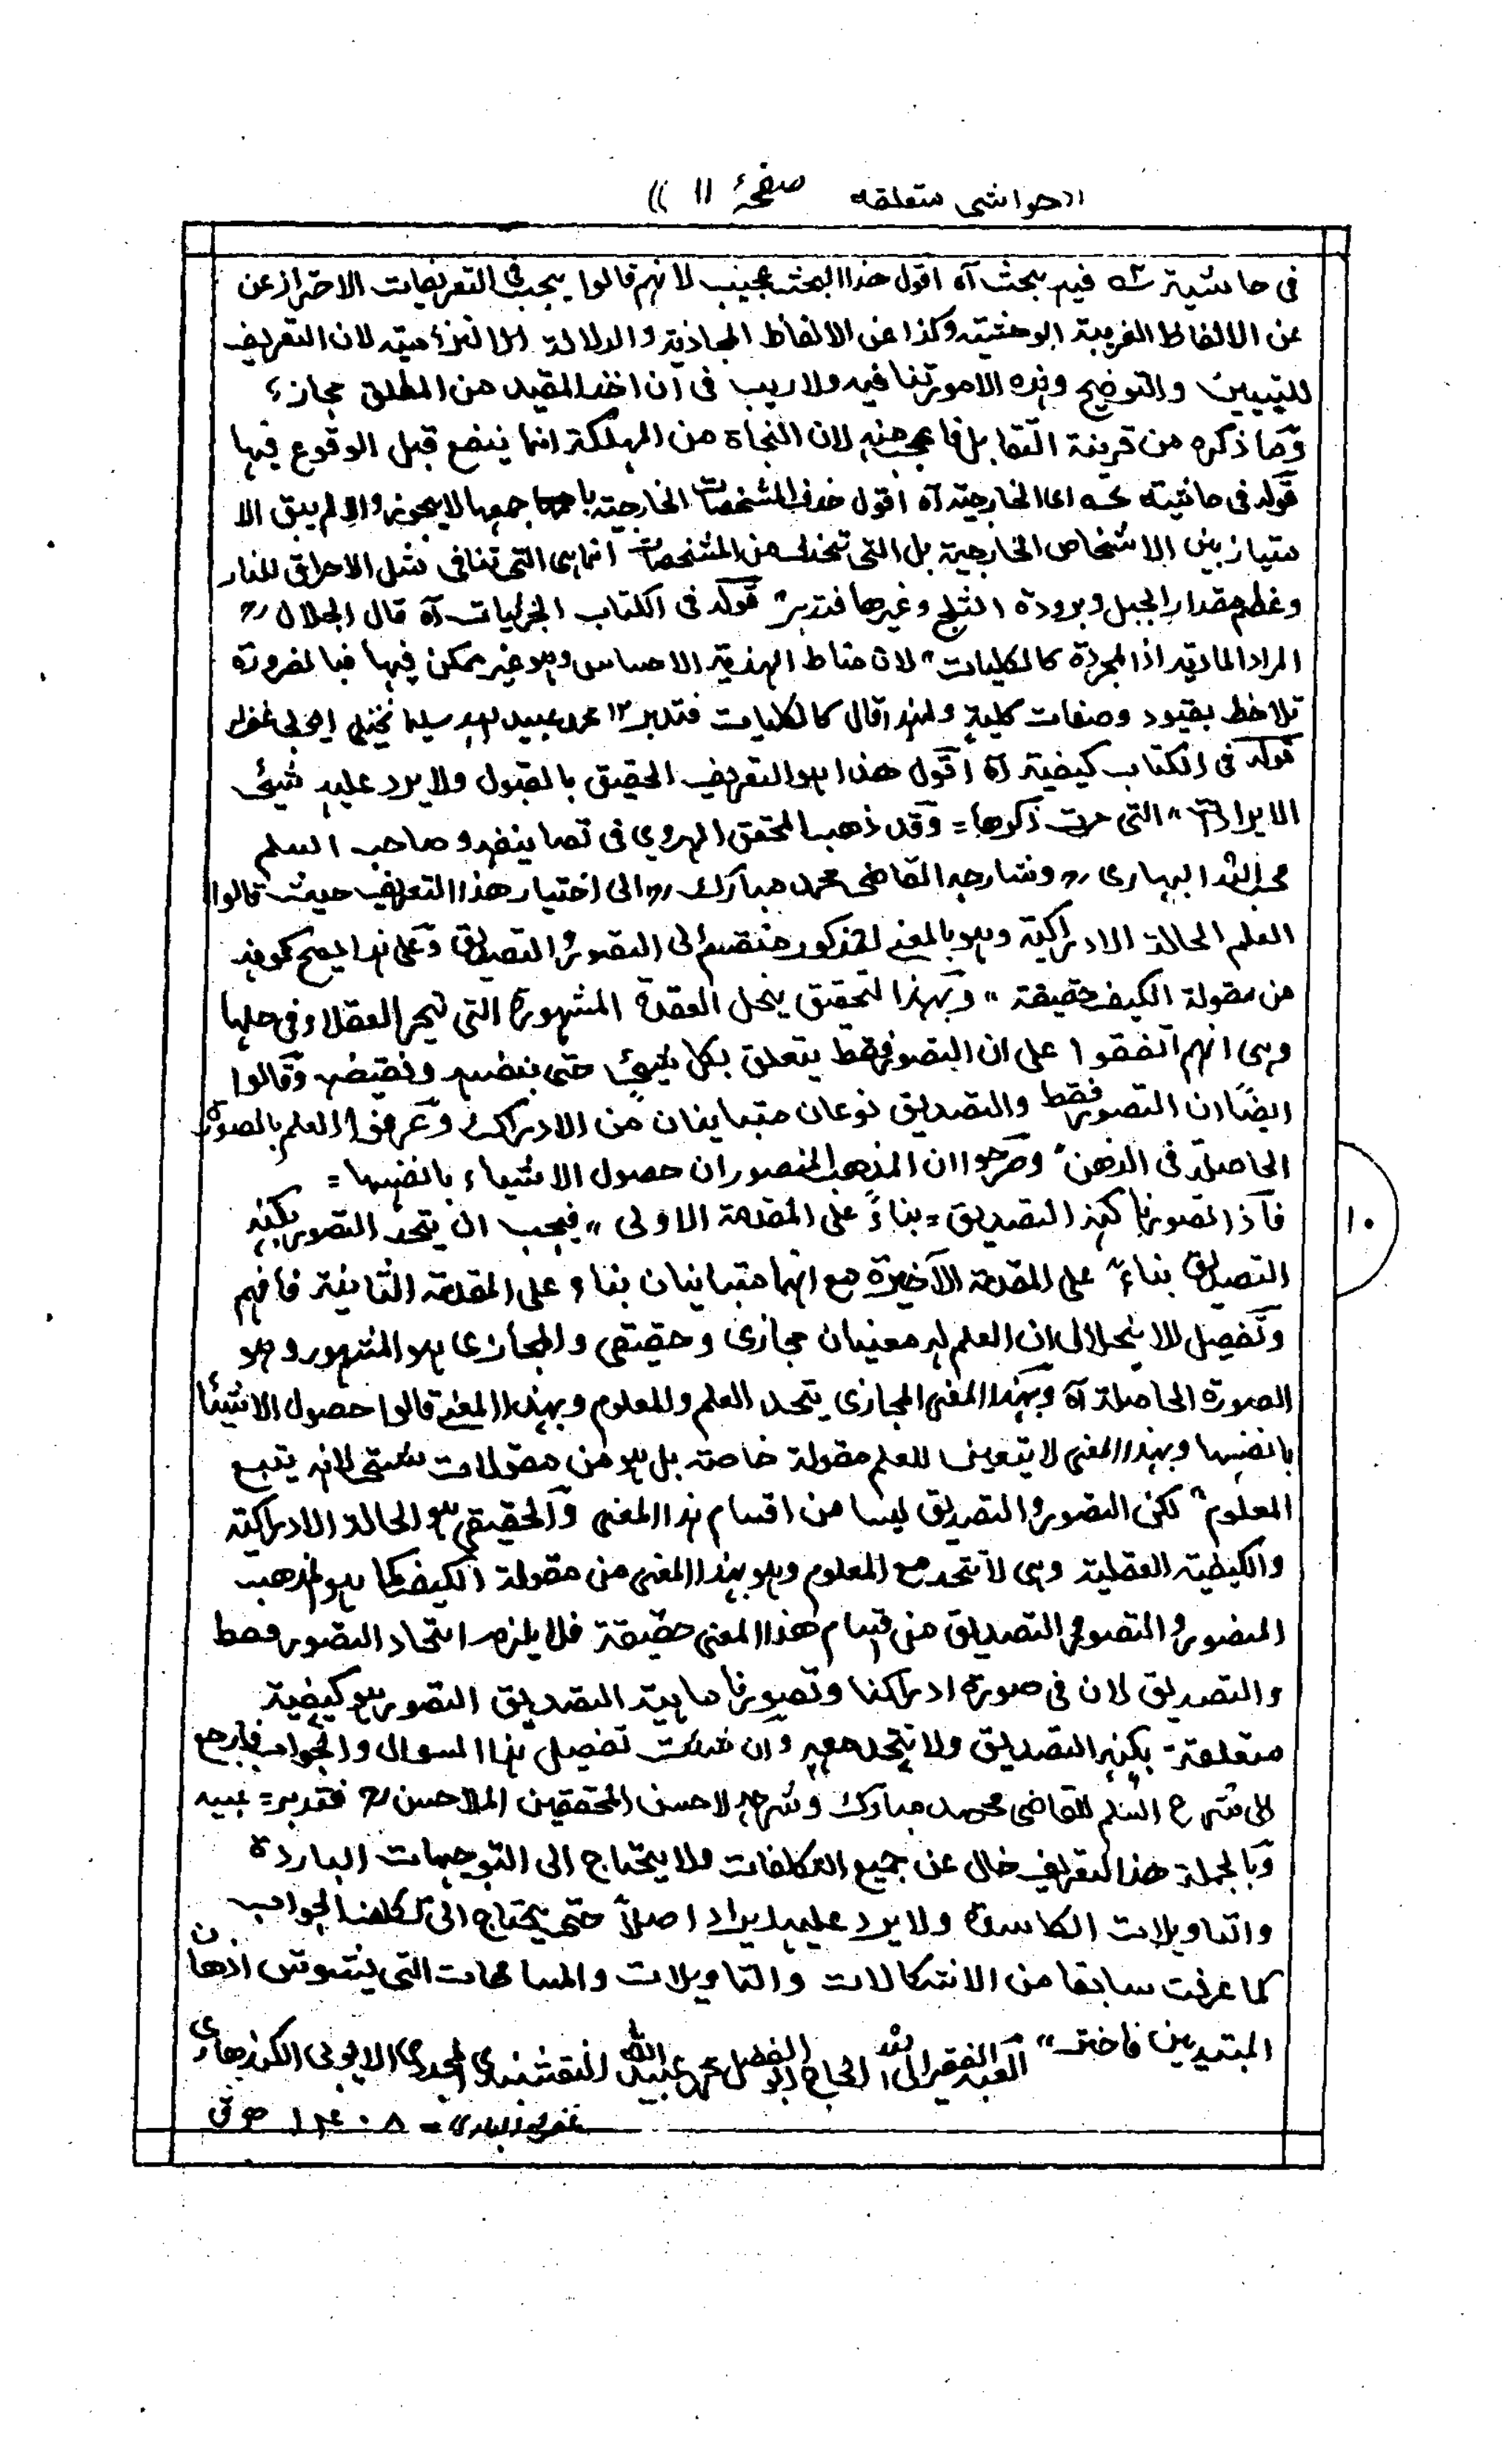 «حواشی متعلقه صفحهٔ ۱۱»
فی حاشیتہ فیہ بحث آہ اقول ھذا البحث عجیب لانہم قالوا یجب فی التعریفات الاحتراز عن
عن الالفاظ الغریبة الوحشیتہ وکذا عن الالفاظ المجازیة والدلالة الالتزامیتہ لان التعریف
للتبیین والتوضیح وہذہ الامور تنافیہ ولاریب فی ان اخذ المقید من المطلق مجازء
وما ذکرہ من قرینة التقابل فاعجب منہ لان النجاة من المہلکة انما ینفع قبل الوقوع فیہا
قولہ فی حاشیتہ ای الخارجیتہ آہ اقول حذف المشخصات الخارجیتہ باجمعہا لایجوز والا لم یبق الا
متیاز بین الاشخاص الخارجیة بل التی تحذف من المشخصات انما ہی التی تنافی مثل الاحراق للنار
وعظم مقدار الجبل وبرودة الثلج وغیرھا فتدبر" قولہ فی الکتاب الجزئیات آہ قال الجلال رح
المراد المادیة اذ المجردة کالکلیات" لان مناط الہذیة الاحساس وہو غیر ممکن فیہا فبالضرورة
تلاحظ بقیود وصفات کلیة ولہذا قال کالکلیات فتدبر ۱۲ محمد عبید اللہ ایوبی غفرلہ
قولہ فی الکتاب کیفیة آہ اقول ھذا ہو التعریف الحقیق بالقبول ولا یرد علیہ شیئی
الایرادات" التی مرت ذکرھا = وقد ذھب المحقق الہروی فی تصانیفہ وصاحب السلم
محب اللہ البہاری رح وشارحہ القاضی محمد مبارک رح الی اختیار ھذا التعریف حیث قالوا
العلم الحالة الادراکیة وہو بالمعنی المذکور منقسم الی التصور والتصدیق وعلی ہذا یصح کونہ
من مقولة الکیف حقیقة" وبہذا التحقیق ینحل العقدة المشہورة التی تحیر العقلاء فی حلہا
وہی انہم اتفقوا علی ان التصور فقط یتعلق بکل شیئ حتی بنفسہ ونقیضہ وقالوا
ایضًا ان التصور فقط والتصدیق نوعان متباینان من الادراک وعرفوا العلم بالصورة
الحاصلة فی الذھن" وصرحوا ان المذھب المنصور ان حصول الاشیاء بانفسہا =
فاذا تصورنا کنہ التصدیق = بناءً علی المقدمة الاولی" فیجب ان یتحد التصور بکنہ
التصدیق بناءً علی المقدمة الاخیرة مع انہما متباینان بناء علی المقدمة الثانیة فافہم
وتفصیل الانحلال ان العلم لہ معنیان مجازی وحقیقی والمجازی ہو المشہور وہو
الصورة الحاصلة آہ وبہذا المعنی المجازی یتحد العلم والمعلوم وبہذا المعنی قالوا حصول الاشیاء
بانفسہا وبہذا المعنی لا یتعین للعلم مقولة خاصة بل ہو من مقولات شتی لانہ یتبع
المعلوم" لکن التصور والتصدیق لیسا من اقسام ہذا المعنی والحقیقی ہو الحالة الادراکیة
والکیفیة العقلیة وہی لا تتحد مع المعلوم وہو بہذا المعنی من مقولة الکیف کما ہو المذھب
المنصور والتصور والتصدیق من اقسام ھذا المعنی حقیقة فلا یلزم اتحاد التصور فقط
والتصدیق لان فی صورة ادراکنا وتصورنا ماہیة التصدیق التصور ہو کیفیة
متعلقة بکنہ التصدیق ولا یتحد معہ وان شئت تفصیل ہذا السوال والجواب فارجع
الی شرح السلم للقاضی محمد مبارک وشرحہ لاحسن المحققین الملا حسن رح فتدبر = عبید
وبالجملة ھذا التعریف خال عن جمیع التکلفات ولا یحتاج الی التوجیہات الباردة
والتاویلات الکاسدة ولا یرد علیہ ایراد اصلاً حتی یحتاج الی تکلف الجواب
کما عرفت سابقا من الاشکالات والتاویلات والمسامحات التی یتشوش اذھان
المبتدیین فاختر" العبد الفقیر الی اللہ الحاج ابو الفضل محمد عبید اللہ النقشبندی المجددی الایوبی الکندھاری
غفرلہ الباری = ۱۴۰۸ ھ ق
۱۰